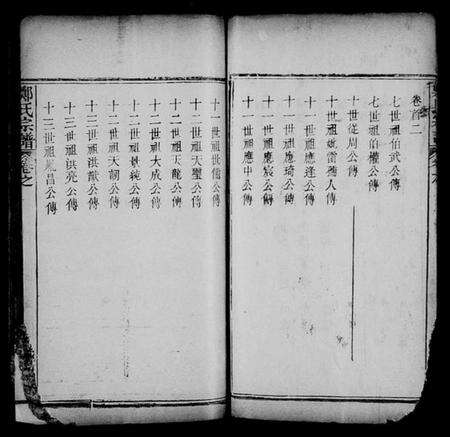 卷首二
七世祖伯武公傳
七世祖伯權公傳
十世從周公傳
十世姚雷孺人傳
十一世祖應逢公傳
十一世祖應琦公傳
十一世祖應宸公傳
十一世祖應中公傳
十一世祖世儒公傳
十二世祖天璽公傳
十二世祖天龍公傳
十二世祖大成公傳
十二世祖公傳
十二世祖天嗣公傳
十三世祖洪猷公傳
十三世祖洪亮公傳
十三世祖昌公傳
鄭氏宗譜